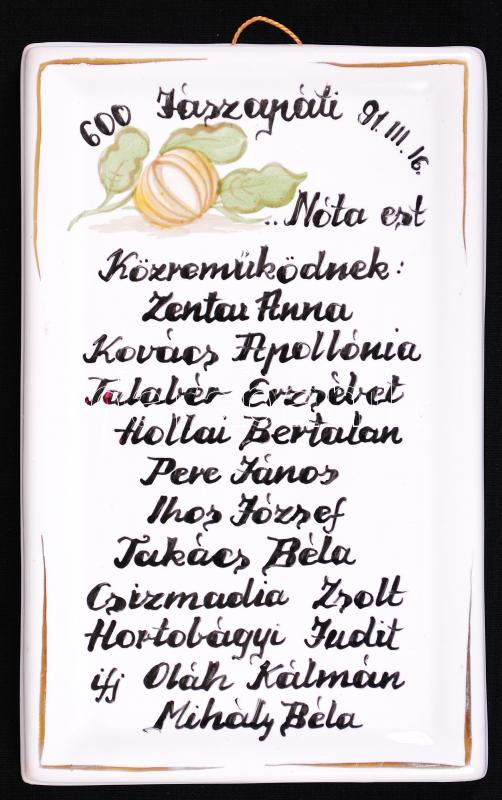 600 Jászapáti 91.III.16.
..Nóta est
Közreműködnek:
Zentai Anna
Kovács Apollónia
Talabér Erzsébet
Hollai Bertalan
Pere János
Ihos József
Takács Béla
Csizmadia Zsolt
Hortobágyi Judit
ifj Oláh Kálmán
Mihály Béla